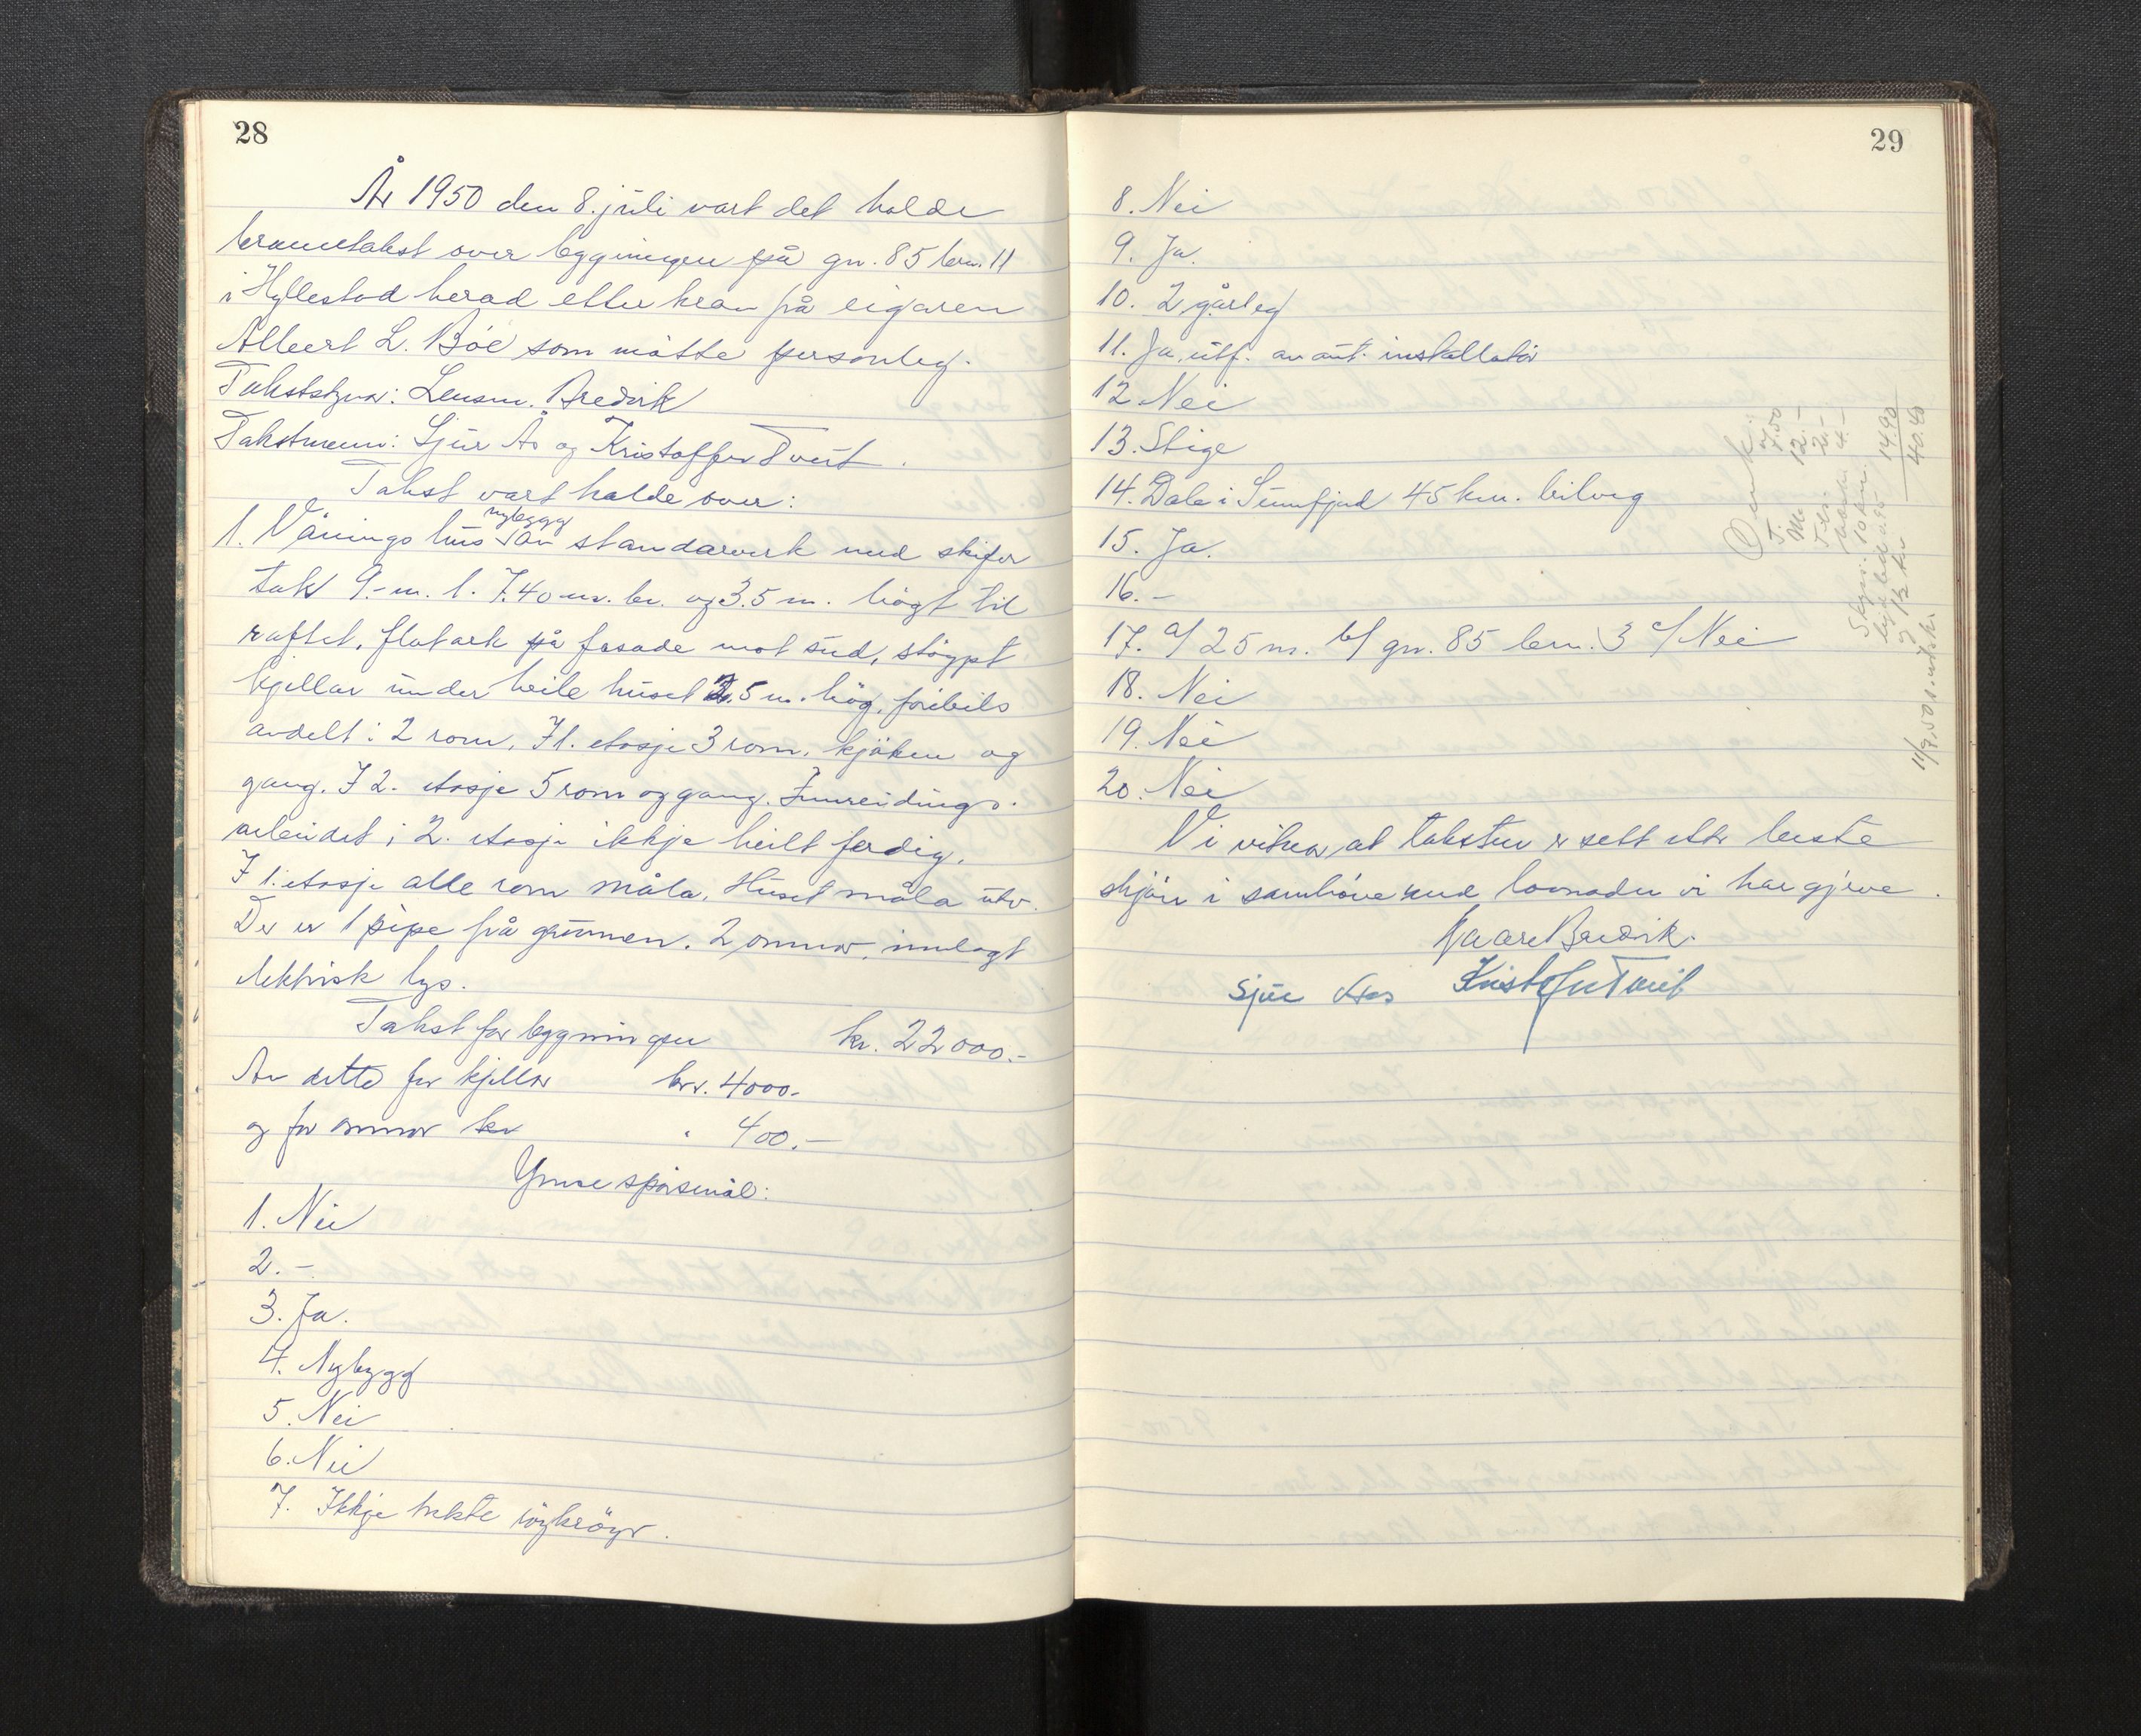 28
År 1950 den 8. juli vart det halde
branntakst over bygningen på gn. 85 brn. 11
i Hyllestad herad etter krav frå eigaren
Albert L. Böe som møtte personleg.
Takststyrar: Lensm. Bredvik
Takstmenn: Sjur Ås og Kristoffer Tveit.
Takst vart halde over:
nybygg
1. Våningshus av standarverk med skifer
tak 9.- m. l. 7.40 m. br. og 3.5 m. högt til
raftet, flatark på fasade mot sud, stöypt
kjellar under heile huset 2.5 m. hög, foribils
avdelt i 2 rom. I 1. etasje 3 rom, kjöken og
gang. I 2. etasje 5 rom og gang. Innreidings-
arbeidet i 2. etasje ikkje heilt ferdig.
I 1. etasje alle rom måla. Huset måla utv.
Der er 1 pipe frå grunnen. 2 omnar, innlagt
elektrisk lys.
Takst for bygningen kr. 22000.-
Av dette for kjellar kr. 4000.-
og for omnar kr " 400.-
Ymse spörsmål:
1. Nei
2. -
3. Ja.
4. Nybygg
5. Nei
6. Nei
7. Ikkje trekte röykröyr.
29
8. Nei
9. Ja.
10. 2 gårleg
11. Ja, utf. av aut. installatör
12. Nei
13. Stige
14. Dale i Sunnfjord 45 km. bilveg
15. Ja.
16. -
17. a/ 25 m. b/ gn. 85 brn. 3 c/ Nei
18. Nei
19. Nei
20. Nei
Vi vitnar at taksten er sett etter beste
skjön i samhöve med lovnaden vi har gjeve.
Kaare Bredvik.
Sjur Aas Kristoffer Tveit
7.50
12.-
2.-
4.-
14.90
40.40